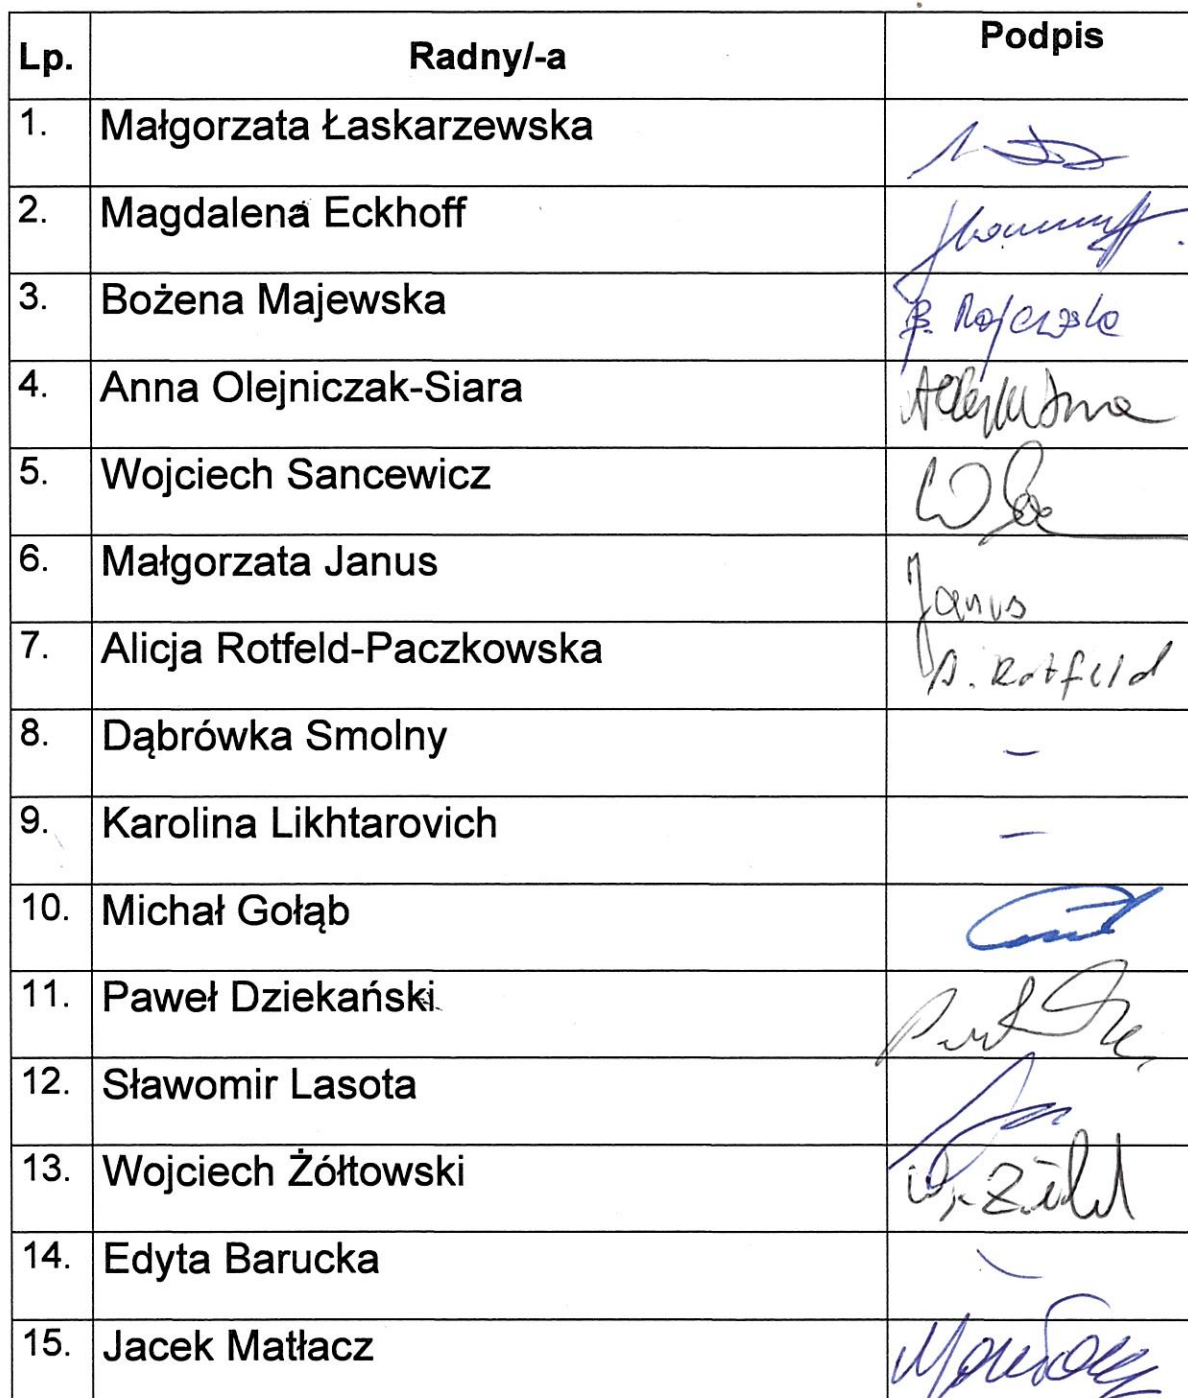 Lp. Radny/-a Podpis
1. Małgorzata Łaskarzewska
2. Magdalena Eckhoff
3. Bożena Majewska B. Majewska
4. Anna Olejniczak-Siara
5. Wojciech Sancewicz
6. Małgorzata Janus Janus
7. Alicja Rotfeld-Paczkowska A. Rotfeld
8. Dąbrówka Smolny –
9. Karolina Likhtarovich –
10. Michał Gołąb
11. Paweł Dziekański
12. Sławomir Lasota
13. Wojciech Żółtowski
14. Edyta Barucka –
15. Jacek Matłacz